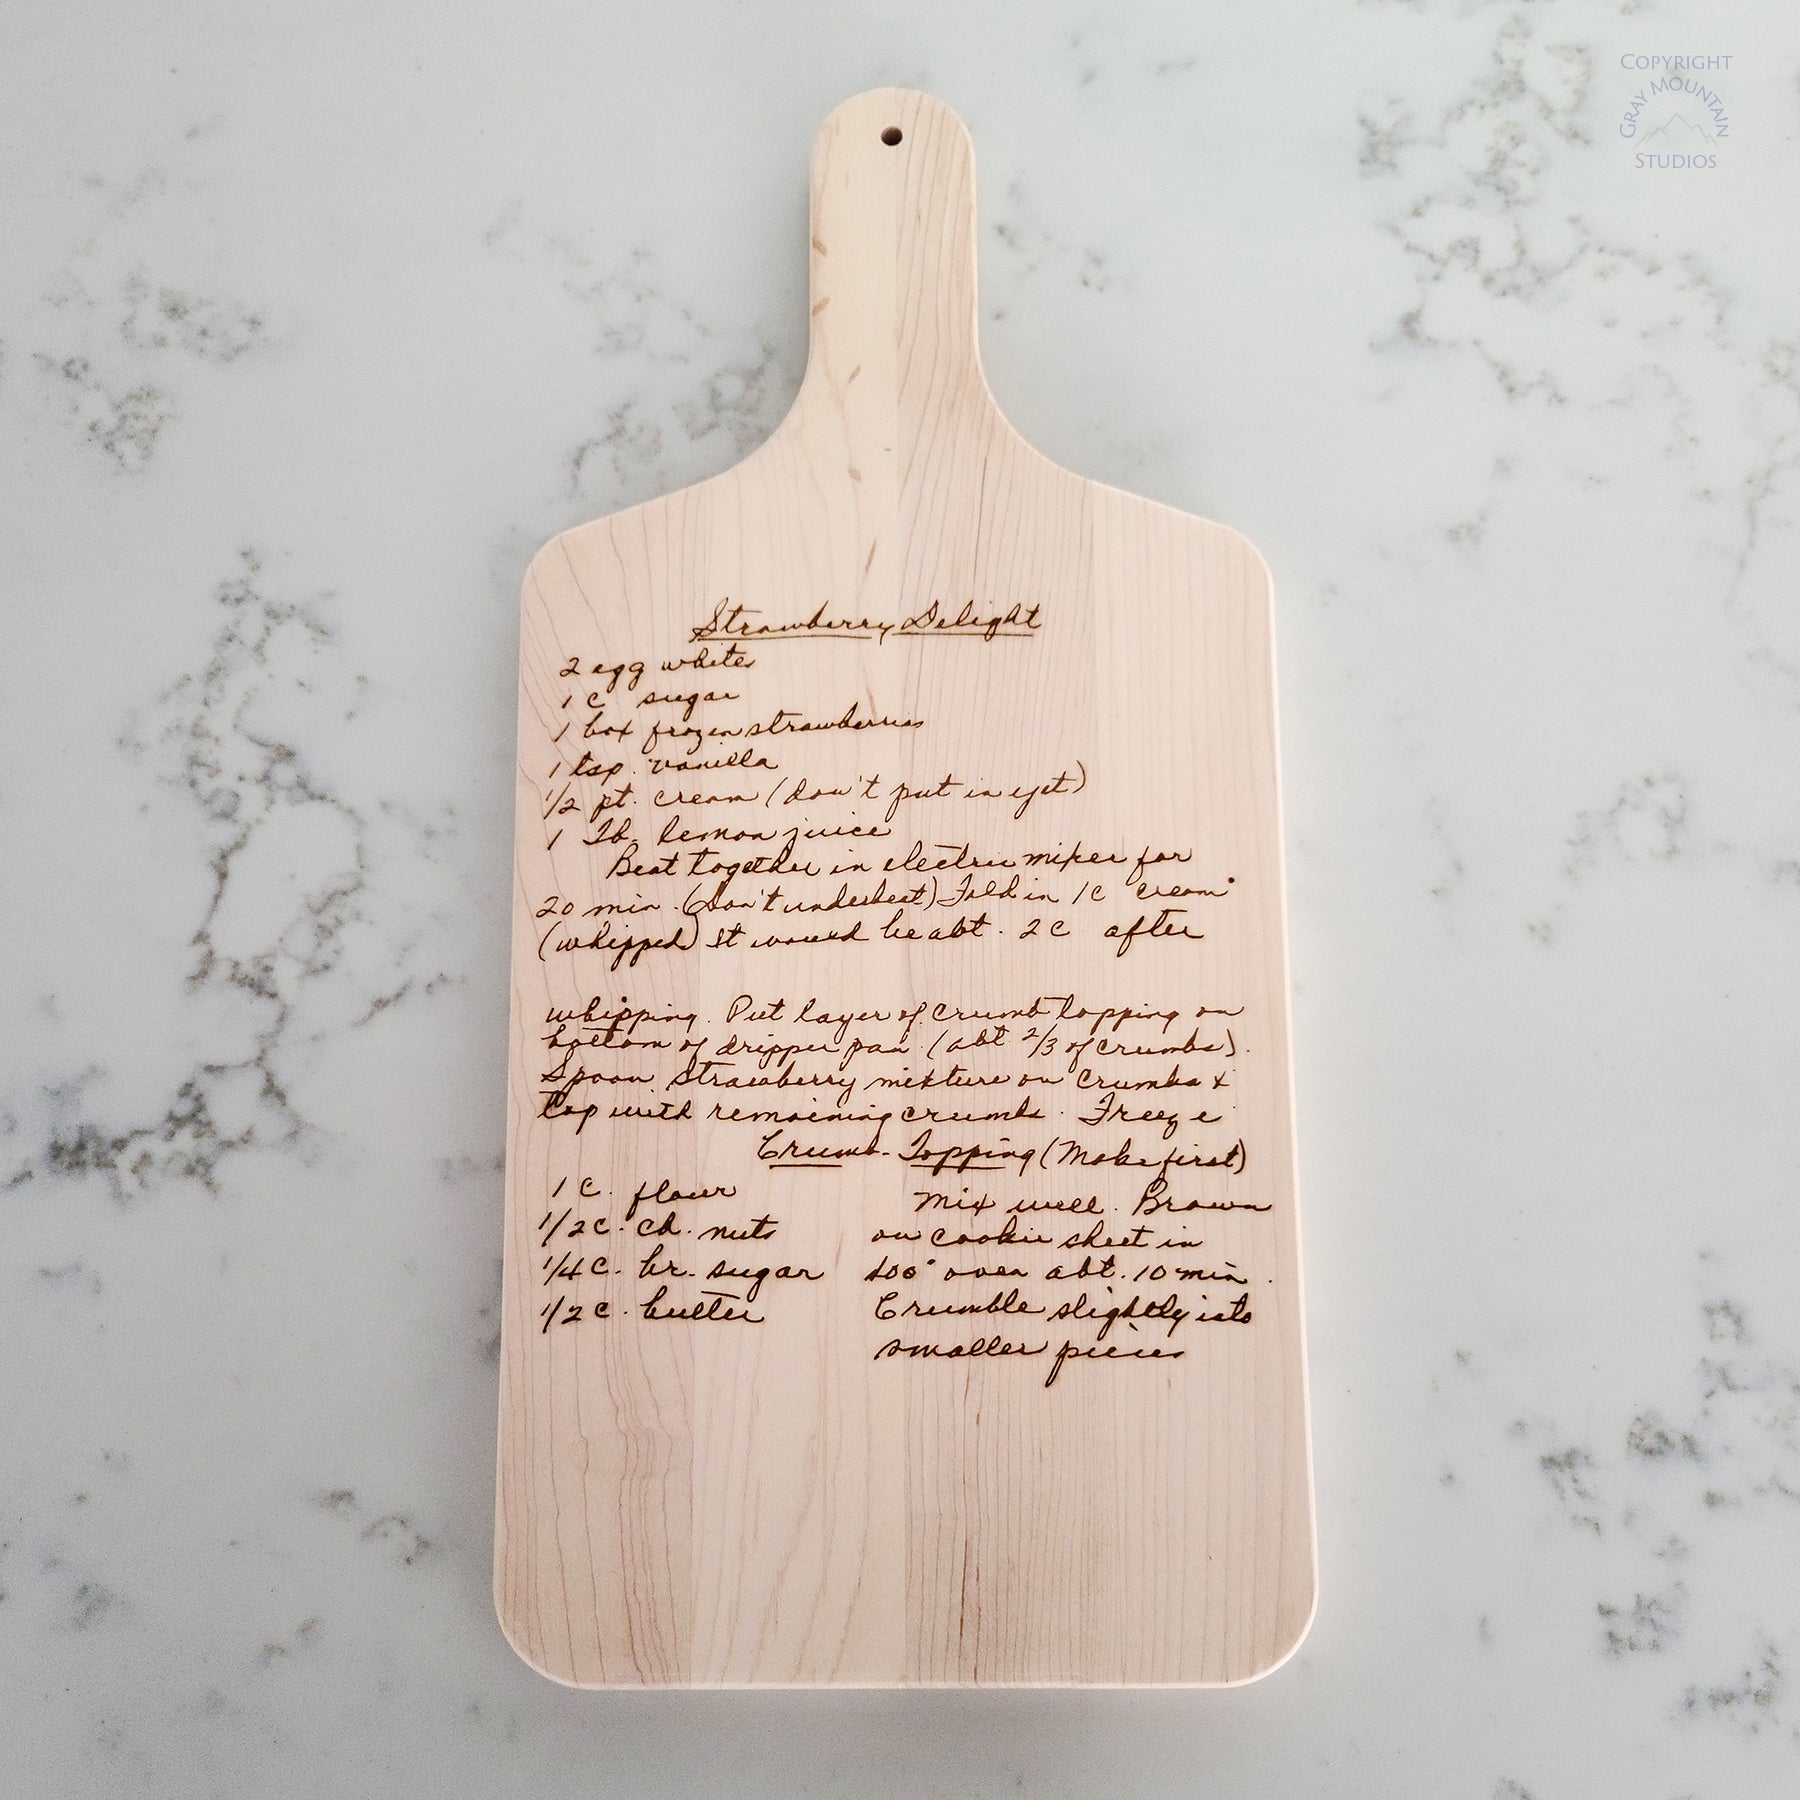 COPYRIGHT
GRAY MOUNTAIN
STUDIOS
Strawberry Delight
2 egg whites
1 c sugar
1 box frozen strawberries
1 tsp. vanilla
1/2 pt. cream (don't put in yet)
1 Tb. lemon juice
Beat together in electric mixer for
20 min. (Don't underbeat) Fold in 1c cream
(whipped) It would be abt. 2 c after
whipping. Put layer of crumb topping on
bottom of dripper pan (abt 2/3 of crumbs).
Spoon strawberry mixture on crumbs &
top with remaining crumbs. Freeze
Crumb-Topping (Make first)
1 c. flour
1/2 c. ch. nuts
1/4 c. br. sugar
1/2 c. butter
Mix well. Brown
on cookie sheet in
400° oven abt. 10 min.
Crumble slightly into
smaller pieces